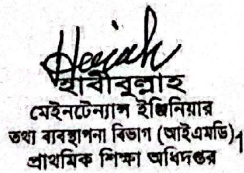 হাবীবুল্লাহ
মেইনটেন্যান্স ইঞ্জিনিয়ার
তথ্য ব্যবস্থাপনা বিভাগ (আইএমডি)
প্রাথমিক শিক্ষা অধিদপ্তর